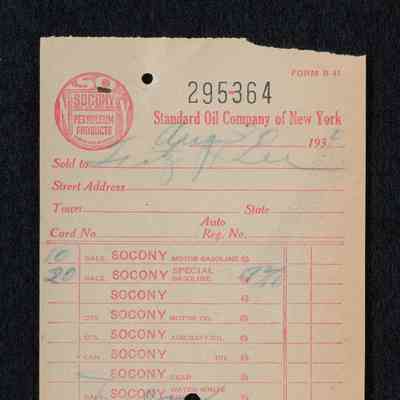 FORM B 41
295364
SOCONY
PETROLEUM
PRODUCTS
Standard Oil Company of New York
Aug 193
Sold to
Street Address
Town State
Auto
Card No. Reg. No.
10 GALS. SOCONY MOTOR GASOLINE @
20 GALS. SOCONY SPECIAL GASOLINE @
SOCONY @
QTS. SOCONY MOTOR OIL @
QTS. SOCONY AIRCRAFT OIL @
CAN SOCONY OIL @
SOCONY GEAR @
GALS. SOCONY WATER WHITE @